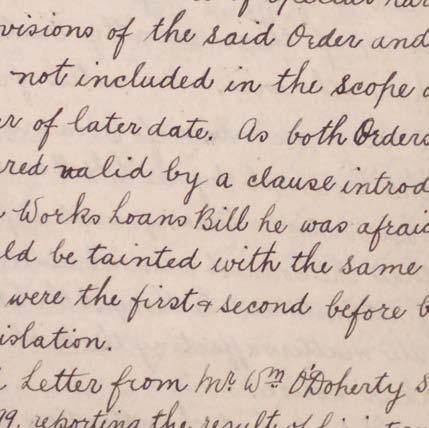 of special har
visions of the said Order and
not included in the scope o
er of later date. As both Orders
red valid by a clause introd
Works Loans Bill he was afraid
ld be tainted with the same
were the first & second before b
islation.
Letter from Mr. Wm. O'Doherty S
99, reporting the result of